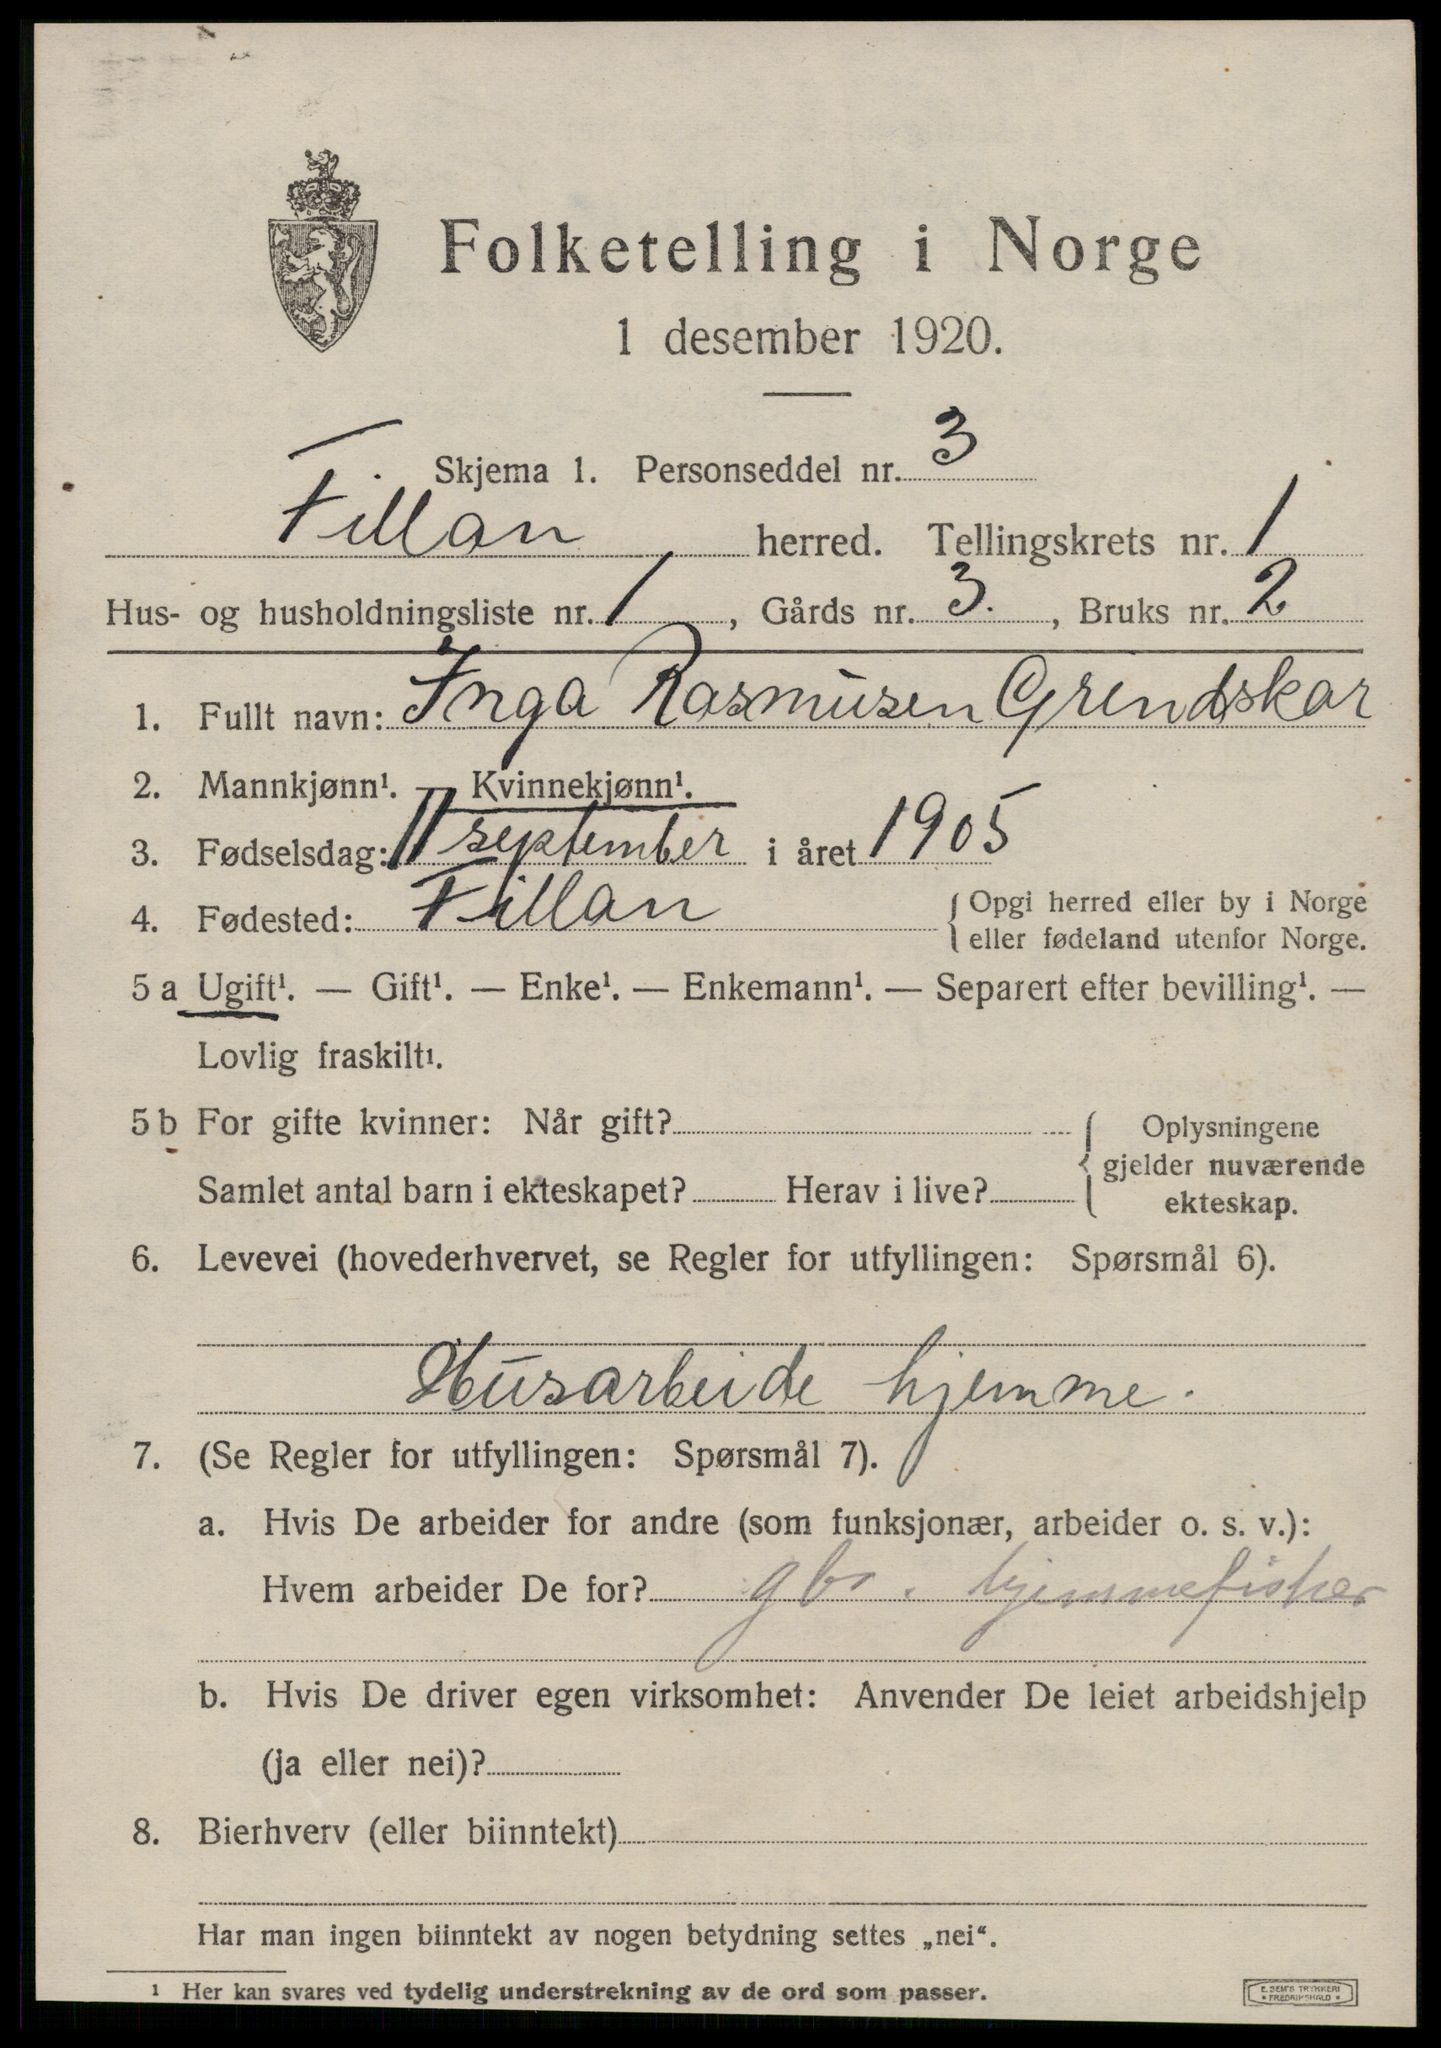 Folketelling i Norge
1 desember 1920.
Skjema 1. Personseddel nr. 3
Fillan herred. Tellingskrets nr. 1
Hus- og husholdningsliste nr. 1, Gårds nr. 3., Bruks nr. 2
1. Fullt navn: Inga Rasmusen Grindskar
2. Mannkjønn¹. — Kvinnekjønn¹.
3. Fødselsdag: 11 september i året 1905
4. Fødested: Fillan { Opgi herred eller by i Norge
eller fødeland utenfor Norge.
5 a Ugift¹. — Gift¹. — Enke¹. — Enkemann¹. — Separert efter bevilling¹. —
Lovlig fraskilt¹.
5 b For gifte kvinner: Når gift? { Oplysningene
gjelder nuværende
Samlet antal barn i ekteskapet? Herav i live? ekteskap.
6. Levevei (hovederhvervet, se Regler for utfyllingen: Spørsmål 6).
Husarbeide hjemme.
7. (Se Regler for utfyllingen: Spørsmål 7).
a. Hvis De arbeider for andre (som funksjonær, arbeider o. s. v.):
Hvem arbeider De for? gbr. hjemmefisker
b. Hvis De driver egen virksomhet: Anvender De leiet arbeidshjelp
(ja eller nei)?
8. Bierhverv (eller biinntekt)
Har man ingen biinntekt av nogen betydning settes „nei“.
¹ Her kan svares ved tydelig understrekning av de ord som passer.
E. SEM'S TRYKKERI
* FREDRIKSHALD *